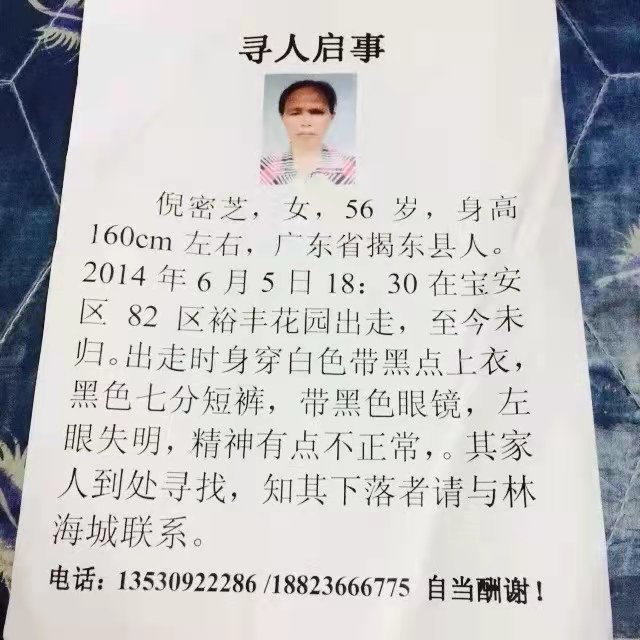 寻人启事
倪密芝，女，56 岁，身高
160cm 左右，广东省揭东县人。
2014 年 6 月 5 日 18：30 在宝安
区 82 区裕丰花园出走，至今未
归。出走时身穿白色带黑点上衣，
黑色七分短裤，带黑色眼镜，左
眼失明，精神有点不正常，。其家
人到处寻找，知其下落者请与林
海城联系。
电话：13530922286 /18823666775 自当酬谢！